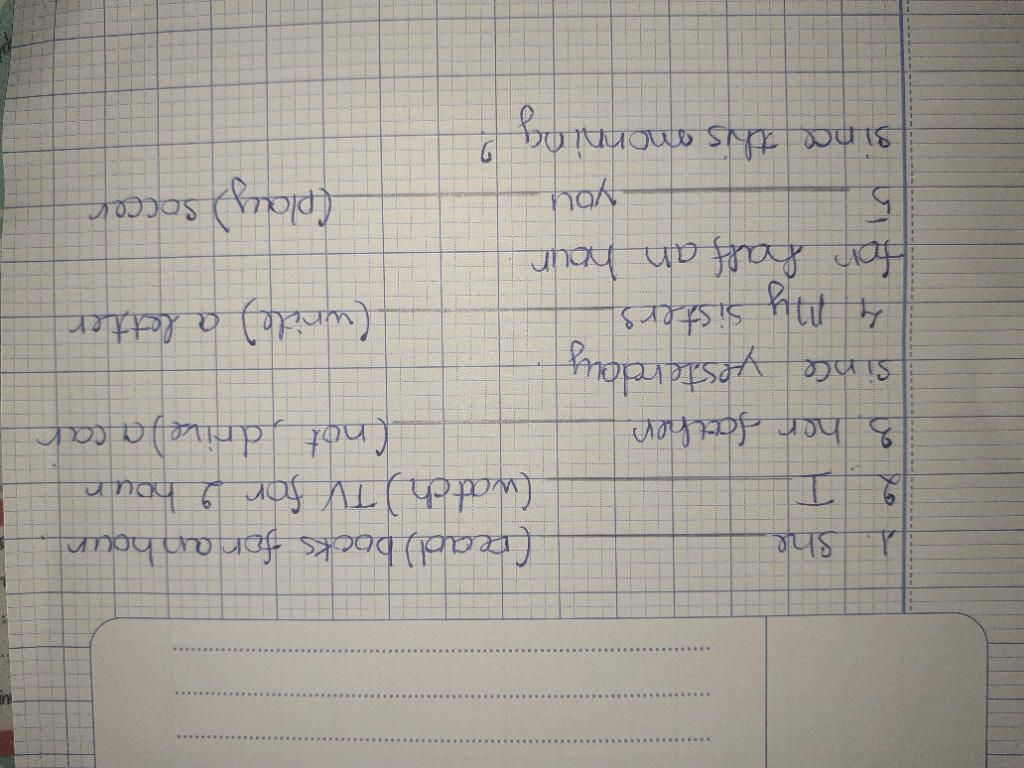 1. She ________ (read) books for an hour.
2 I ________ (watch) TV for 2 hour
3. her father ________ (not, drive) a car
since yesterday.
4 My sisters ________ (write) a letter
for half an hour
5 ________ you ________ (play) soccer
since this morning ?